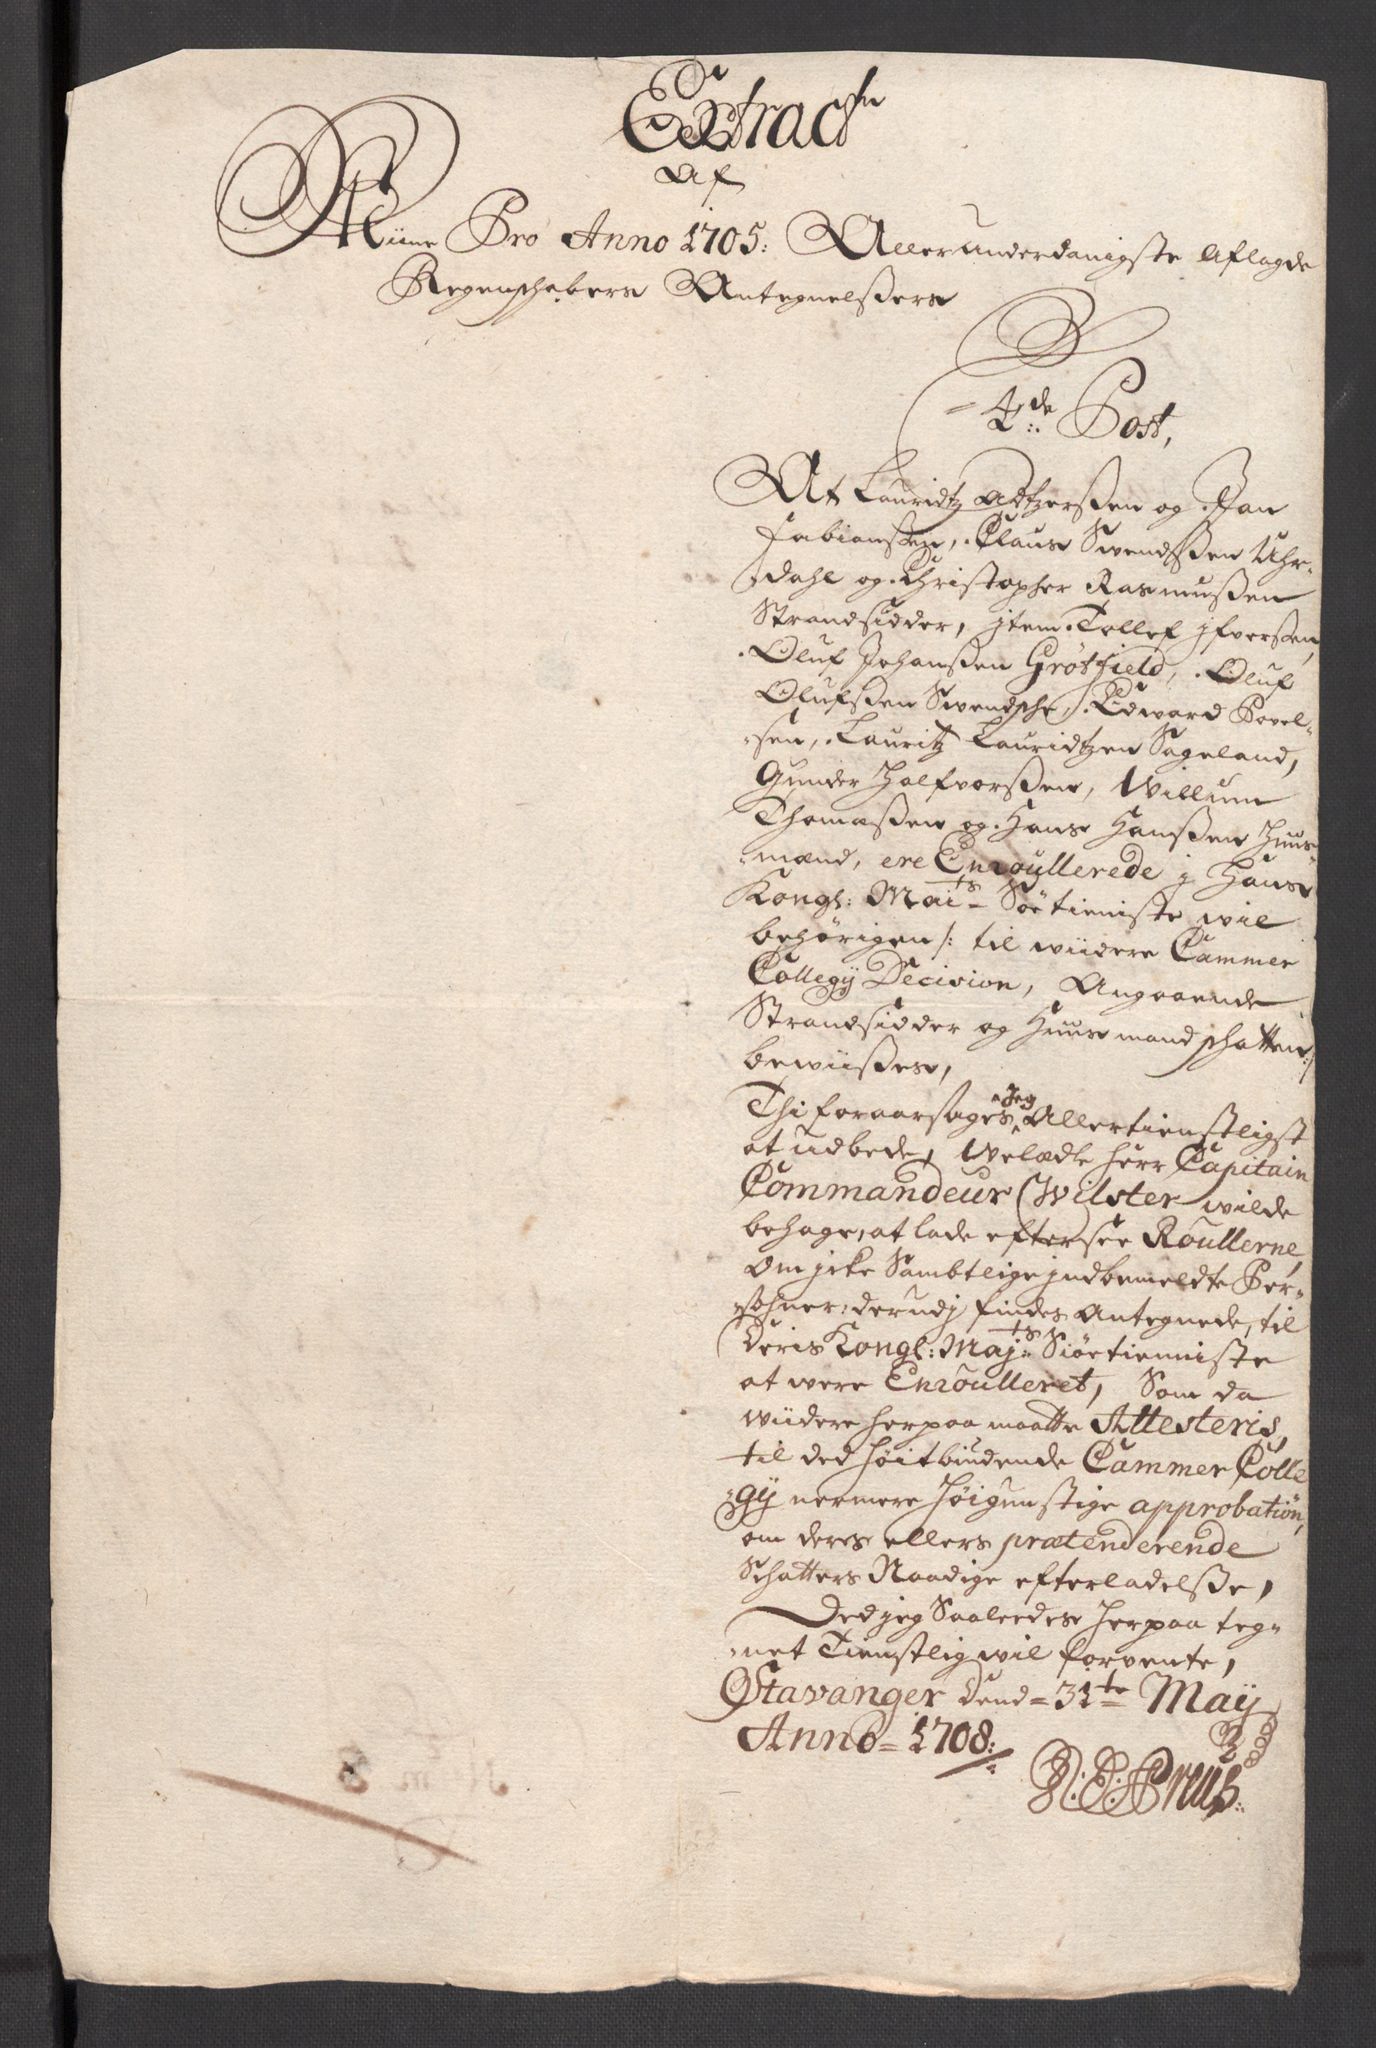 Extract
Af
Miine Pro Anno 1705: Allerunderdanigste Aflagde
Regenschabers Antegnelßers
4de:: Post,
At Lauridtz Adtzerßen og Jan
Fabianßen, Claus Swendßen Uhr-
dahl og Christopher Rasmußen
Strandsidder, jtem Tollef jfverßen,
Oluf Johanßen Grøtfield, Oluf
Olufßen Swendsche, Edward Povel-
sen, Lauritz Lauridtzen Sageland,
Gunder Halfvorßen, Willum
Thomæßen og Hans Hanßen Huus-
mænd, ere Enroullerede j Hans
Kongl: Maits Søetieniste wil
behørigen /: til wiidere Cammer
Collegij Decision, Angaaende
Strandsidder og Huusmand schatten :/
bewiißes,
Thi foraarsages Jeg Allertienstligst
at udbede, Welædle herr Capitain
Commandeur Wilster wilde
behage, at lade eftersee Roullerne,
Om jcke Samtlige jndbemeldte Per-
sohner, derudj findes Antegnede, til
Deris Kongl: Majts Siøetienniste
at were Enroulleret, Som da
wiidere herpaa maatte Attesteris,
til ded høitbiudende Cammer Colle
gij nermere høigunstige approbation,
om deres ellers prætenderende
Schatters Naadige efterladelße,
Ded jeg Saaledes herpaa teg-
net Tienstlig wil forvente,
Stavanger Dend = 31te May
Anno = 1708: